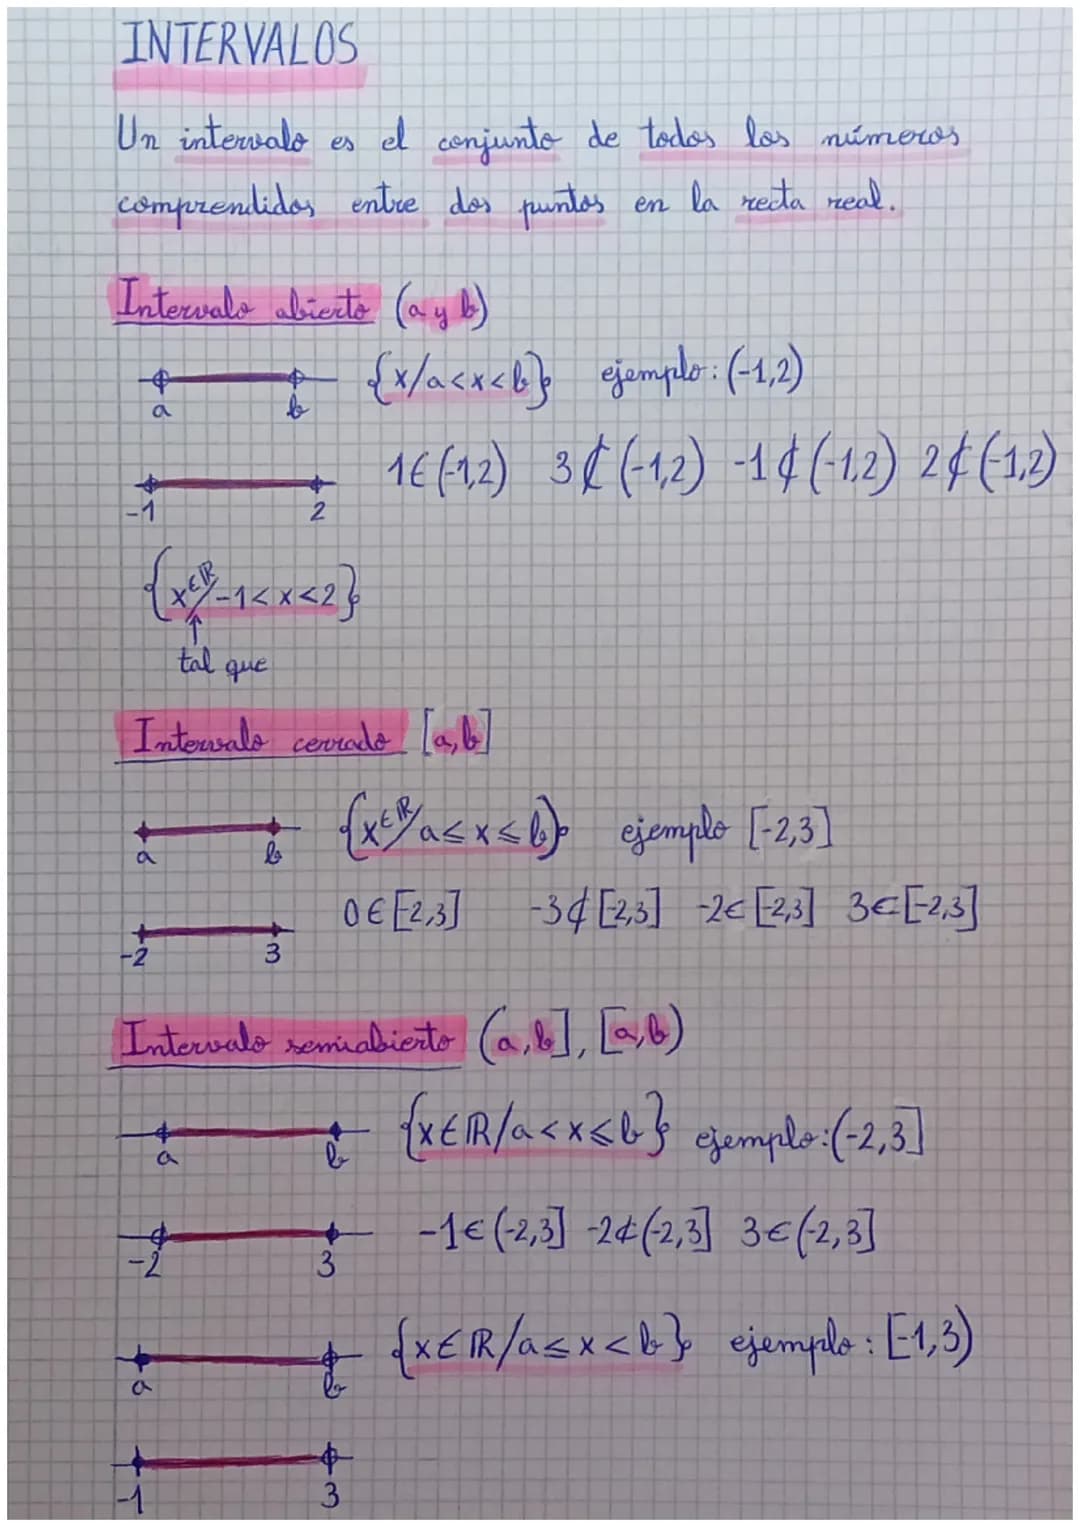 INTERVALOS
Un intervalo es el conjunto de todos los números
comprendidos entre dos puntos en la recta real.
Intervalo abierto (a y b)
a b {x/a<x<b} ejemplo: (-1,2)
-1 2 1∈(-1,2) 3∉(-1,2) -1∉(-1,2) 2∉(-1,2)
{x∈ℝ/-1<x<2}
↑
tal que
Intervalo cerrado [a,b]
a b {x∈ℝ/a≤x≤b} ejemplo [-2,3]
-2 3 0∈[-2,3] -3∉[-2,3] -2∈[-2,3] 3∈[-2,3]
Intervalo semiabierto (a,b], [a,b)
a b {x∈ℝ/a<x≤b} ejemplo:(-2,3]
-2 3 -1∈(-2,3] -2∉(-2,3] 3∈(-2,3]
a b {x∈ℝ/a≤x<b} ejemplo: [-1,3)
-1 3